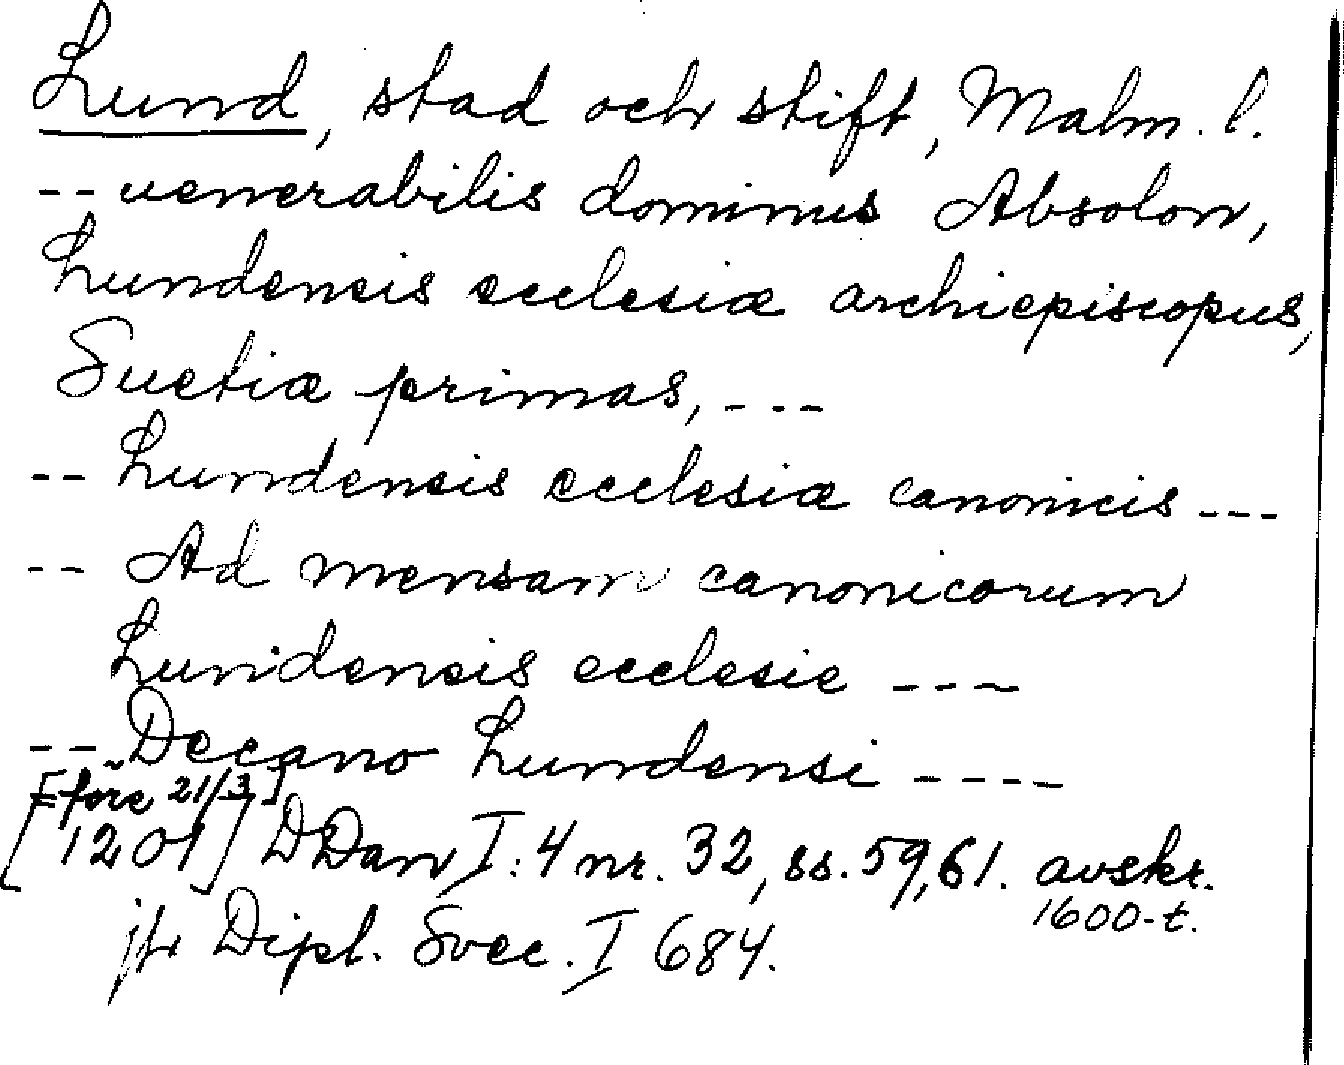 Lund, stad och stift, Malm. l.
-- uenerabilis dominus Absolon,
Lundensis ecclesiæ archiepiscopus,
Suetiæ primas, ---
-- Lundensis ecclesiæ canonicis ---
-- Ad mensam canonicorum
Lundensis ecclesie ---
-- Decano Lundensi ----
[före 21/3]
[1201] DDan I:4 nr. 32, ss. 59, 61. avskr.
1600-t.
jfr Dipl. Svec. I 684.